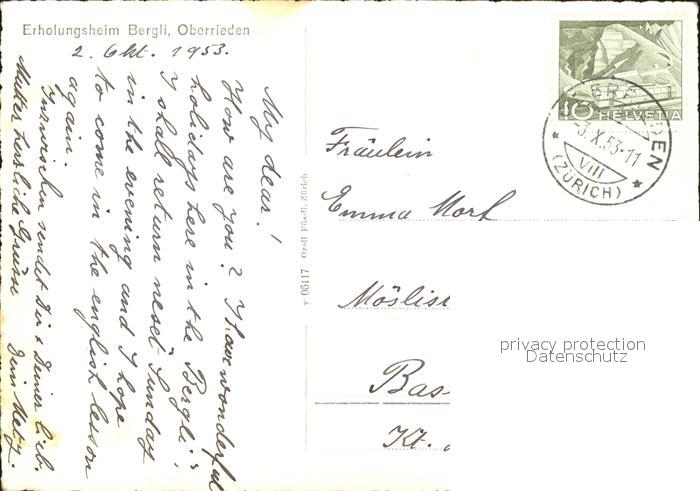 Erholungsheim Bergli, Oberrieden
2. Okt. 1953.
My dear!
How are you? I have wonderful
holidays here in the "Bergli"!
I shall return next Sunday
in the evening and I hope
to come in the english lesson
again.
Inzwischen sendet Dir & Deiner lieb.
Mutter herzliche Grüsse Dein
y 06117 Orell Füssli, Zürich
10 HELVETIA
3.X.53-11
VIII
(ZÜRICH)
Fräulein
Emma Morf
Bas
Kt.
privacy protection
Datenschutz